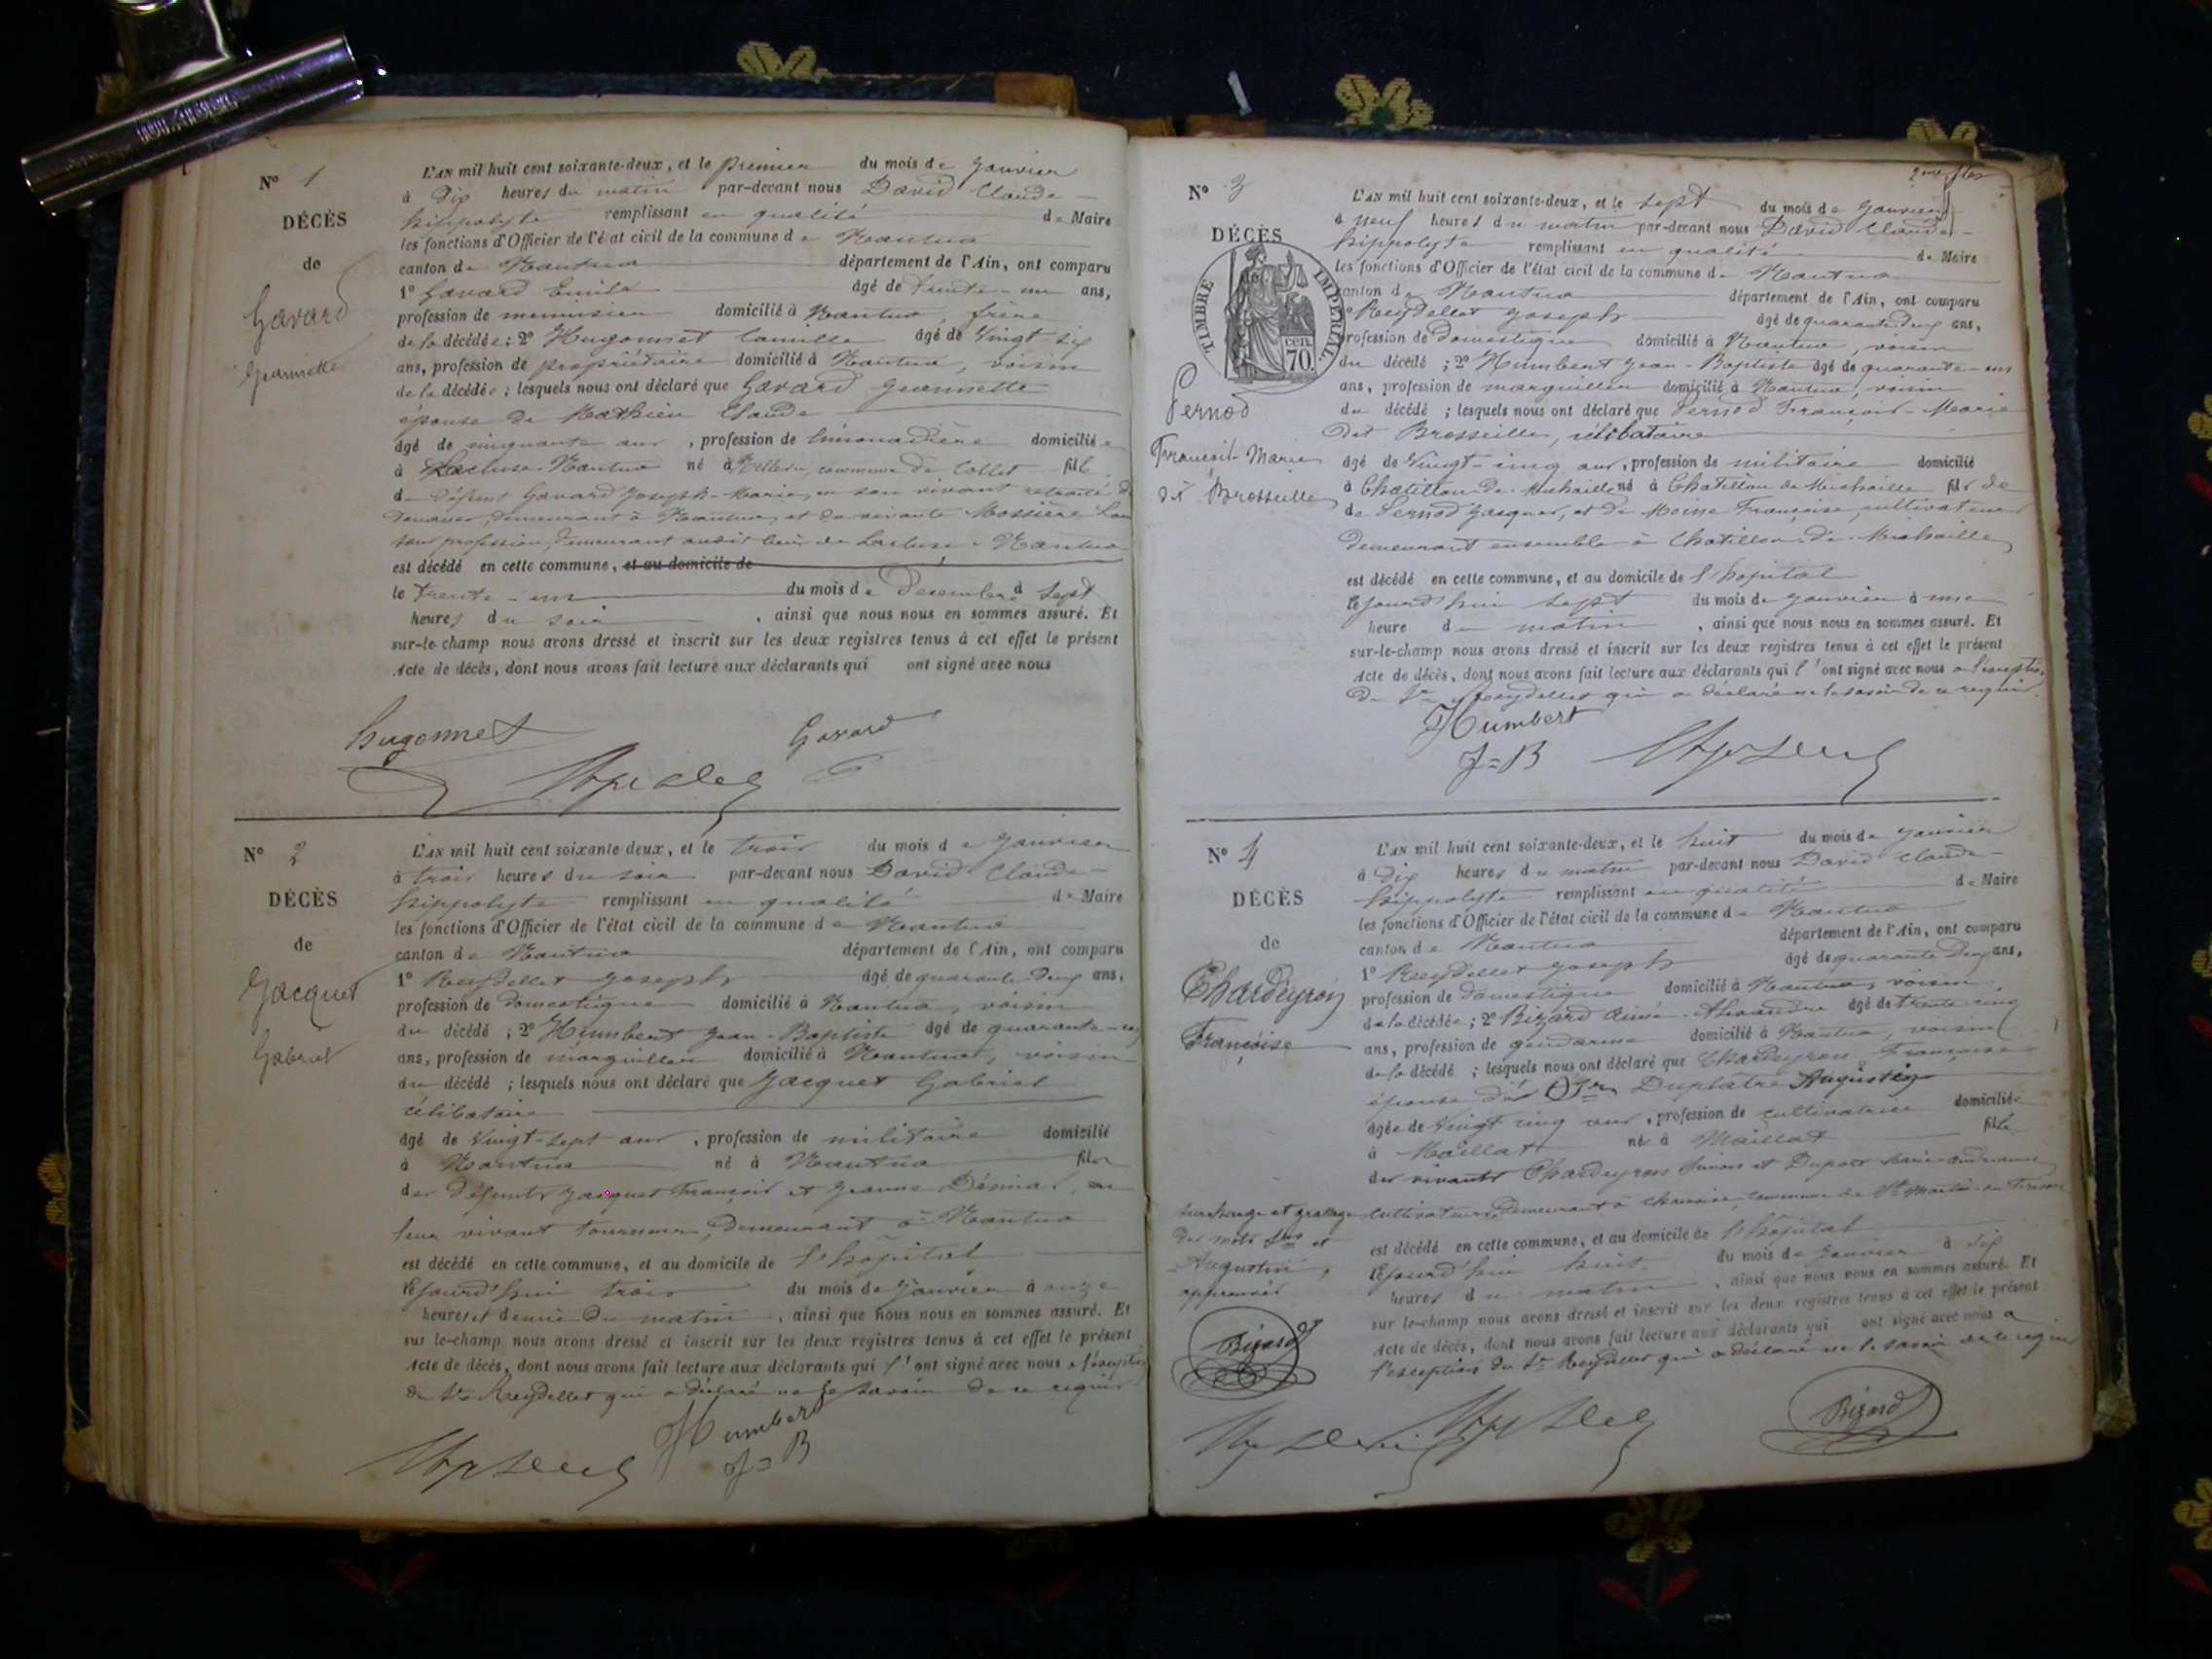 N° 1
DÉCÈS
de
Gavard
Jeannette
L'AN mil huit cent soixante-deux, et le premier du mois de Janvier
à dix heures du matin par-devant nous David Claude-
hippolyte remplissant en qualité de Maire
les fonctions d'Officier de l'état civil de la commune de Nantua
canton de Nantua département de l'Ain, ont comparu
1° Gavard Emile âgé de trente-un ans,
profession de menuisier domicilié à Nantua, frère
de la décédée ; 2° Hugonnet Camille âgé de vingt six
ans, profession de propriétaire domicilié à Nantua, voisin
de la décédée ; lesquels nous ont déclaré que Gavard Jeannette
épouse de Mathieu Claude
âgé de cinquante ans, profession de limonadière domiciliée
à Lacluse-Nantua né à commune de Collet fille
de défunt Gavard Joseph-Marie, en son vivant retraité de
douanes, demeurant à Nantua, et de vivante
sans profession, demeurant audit lieu de Lacluse-Nantua
est décédé en cette commune, et au domicile de
le trente-un du mois de Décembre à sept
heures du soir, ainsi que nous nous en sommes assuré. Et
sur-le-champ nous avons dressé et inscrit sur les deux registres tenus à cet effet le présent
Acte de décès, dont nous avons fait lecture aux déclarants qui ont signé avec nous
hugonnet Gavard
N° 2
DÉCÈS
de
Jacquet
Gabriel
L'AN mil huit cent soixante deux, et le trois du mois de Janvier
à trois heures du soir par-devant nous David Claude-
hippolyte remplissant en qualité de Maire
les fonctions d'Officier de l'état civil de la commune de Nantua
canton de Nantua département de l'Ain, ont comparu
1° Reydellet Joseph âgé de quarante deux ans,
profession de domestique domicilié à Nantua, voisin
du décédé ; 2° Humbert Jean-Baptiste âgé de quarante-
ans, profession de marguillier domicilié à Nantua, voisin
du décédé ; lesquels nous ont déclaré que Jacquet Gabriel
célibataire
âgé de vingt-sept ans, profession de militaire domicilié
à Nantua né à Nantua fils
des défunts Jacquet François et Jeanne en
leur vivant tourneur, demeurant à Nantua
est décédé en cette commune, et au domicile de l'hôpital
cejourd'hui trois du mois de Janvier à onze
heures et demie du matin, ainsi que nous nous en sommes assuré. Et
sur le-champ nous avons dressé et inscrit sur les deux registres tenus à cet effet le présent
Acte de décès, dont nous avons fait lecture aux déclarants qui l'ont signé avec nous à l'exception
du Sr Reydellet qui a déclaré ne le savoir de ce requis
Humbert
J=B
N° 3
DÉCÈS
de
TIMBRE IMPÉRIAL
70 cen.
Pernod
François-Marie
dit Brosseille
L'AN mil huit cent soixante-deux, et le sept du mois de Janvier
à neuf heures du matin par-devant nous David Claude-
hippolyte remplissant en qualité de Maire
les fonctions d'Officier de l'état civil de la commune de Nantua
canton de Nantua département de l'Ain, ont comparu
1° Reydellet Joseph âgé de quarante deux ans,
profession de domestique domicilié à Nantua, voisin
du décédé ; 2° Humbert Jean-Baptiste âgé de quarante-
ans, profession de marguillier domicilié à Nantua, voisin
du décédé ; lesquels nous ont déclaré que Pernod François-Marie
dit Brosseille, célibataire
âgé de vingt-cinq ans, profession de militaire domicilié
à Chatillon-de-Michaille né à Chatillon de Michaille fils de
de Pernod Jacques, et de Françoise, cultivateurs
demeurant ensemble à Chatillon-de-Michaille
est décédé en cette commune, et au domicile de l'hôpital
cejourd'hui sept du mois de Janvier à une
heure du matin, ainsi que nous nous en sommes assuré. Et
sur-le-champ nous avons dressé et inscrit sur les deux registres tenus à cet effet le présent
Acte de décès, dont nous avons fait lecture aux déclarants qui l'ont signé avec nous à l'exception
du Sr Reydellet qui a déclaré ne le savoir de ce requis.
Humbert
J=B
N° 4
DÉCÈS
de
Chardeyron
Françoise
L'AN mil huit cent soixante-deux, et le huit du mois de Janvier
à dix heures du matin par-devant nous David Claude-
hippolyte remplissant en qualité de Maire
les fonctions d'Officier de l'état civil de la commune de Nantua
canton de Nantua département de l'Ain, ont comparu
1° Reydellet Joseph âgé de quarante deux ans,
profession de domestique domicilié à Nantua, voisin
de la décédée ; 2° Bizard Aimé-Alexandre âgé de trente cinq
ans, profession de gendarme domicilié à Nantua, voisin
de la décédé ; lesquels nous ont déclaré que Chardeyron Françoise
épouse Duplatre Augustin
âgée de vingt cinq ans, profession de cultivatrice domiciliée
à Maillat né à Maillat fille
des vivants Chardeyron Simon et Dupont Marie-
cultivateurs, demeurant à commune de St Martin-du-Fresne
est décédé en cette commune, et au domicile de l'hôpital
cejourd'hui huit du mois de Janvier à dix
heures du matin, ainsi que nous nous en sommes assuré. Et
sur le-champ nous avons dressé et inscrit sur les deux registres tenus à cet effet le présent
Acte de décès, dont nous avons fait lecture aux déclarants qui ont signé avec nous à
l'exception du Sr Reydellet qui a déclaré ne le savoir de ce requis
surcharge et grattage
des mots et
Augustin,
approuvés
Bizard
Bizard